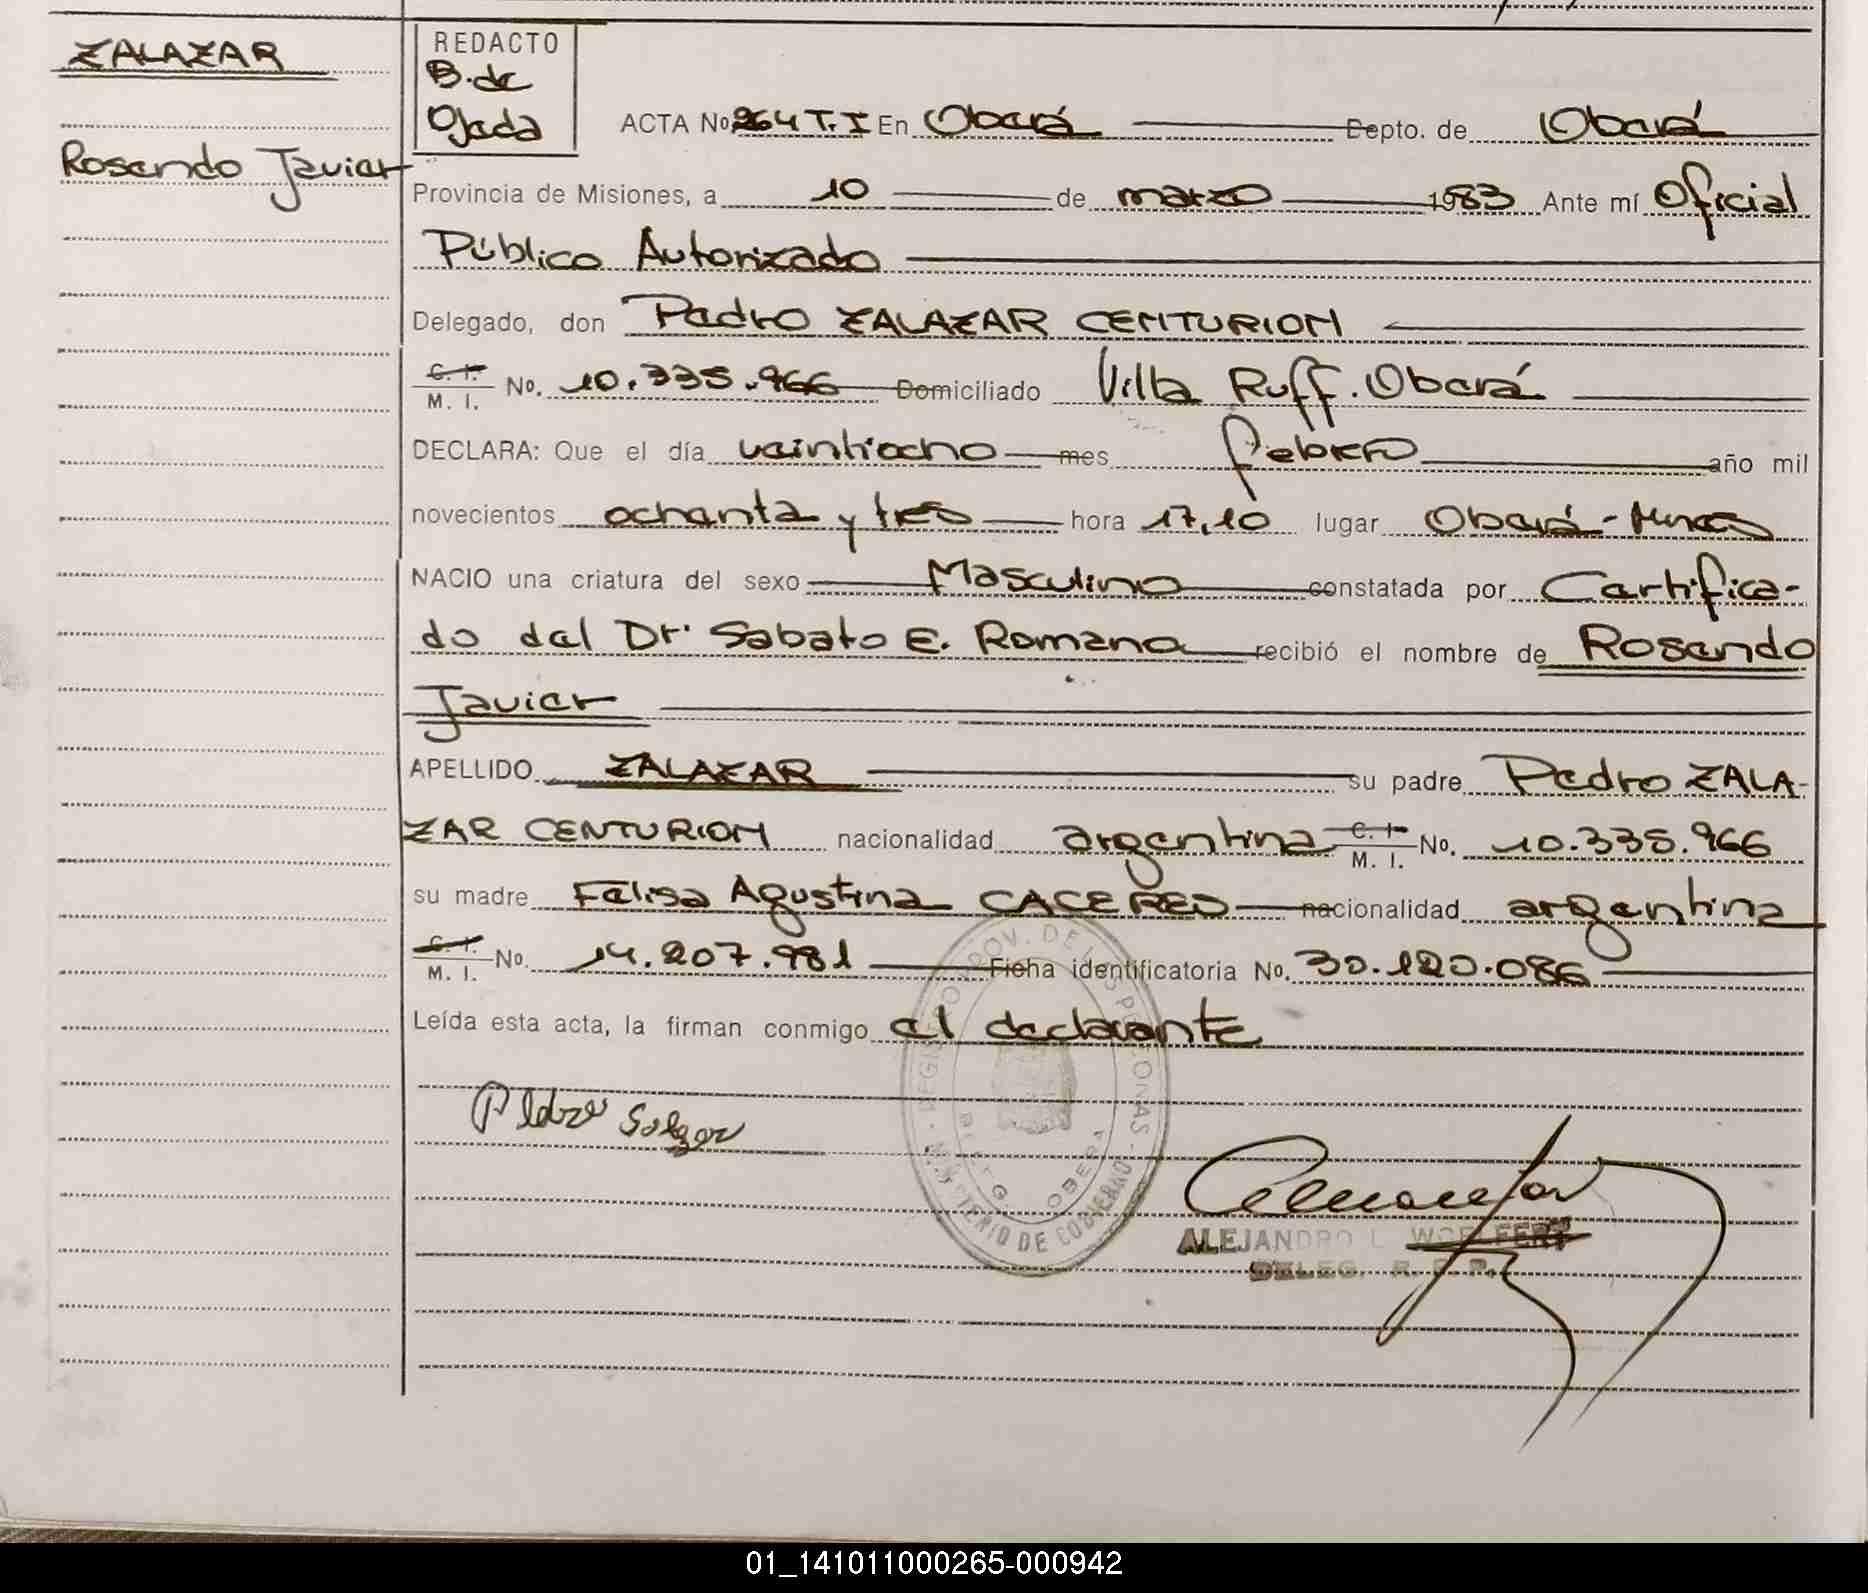 ZALAZAR
Rosendo Javier
REDACTO
B. de
Ojeda
ACTA No. 264 T. I En Oberá Depto. de Oberá
Provincia de Misiones, a 10 de marzo 1983 Ante mí Oficial
Público Autorizado
Delegado, don Pedro ZALAZAR CENTURION
C. I. M. I. No. 10.335.966 Domiciliado Villa Ruff. Oberá
DECLARA: Que el día veintiocho mes febrero año mil
novecientos ochenta y tres hora 17,10 lugar Oberá -
NACIO una criatura del sexo Masculino constatada por Certifica-
do del Dr. Sabato E. Romano recibió el nombre de Rosendo
Javier
APELLIDO ZALAZAR su padre Pedro ZALA-
ZAR CENTURION nacionalidad argentina C. I. M. I. No. 10.335.966
su madre Felisa Agustina CACERES nacionalidad argentina
C. I. M. I. No. 14.207.981 Ficha identificatoria No. 30.120.086
Leída esta acta, la firman conmigo el declarante
REGISTRO PROV. DE LAS PERSONAS
MINISTERIO DE GOBIERNO
DELEG. OBERA
ALEJANDRO L. WOELFERT
DELEG. R. P. P.
01_141011000265-000942